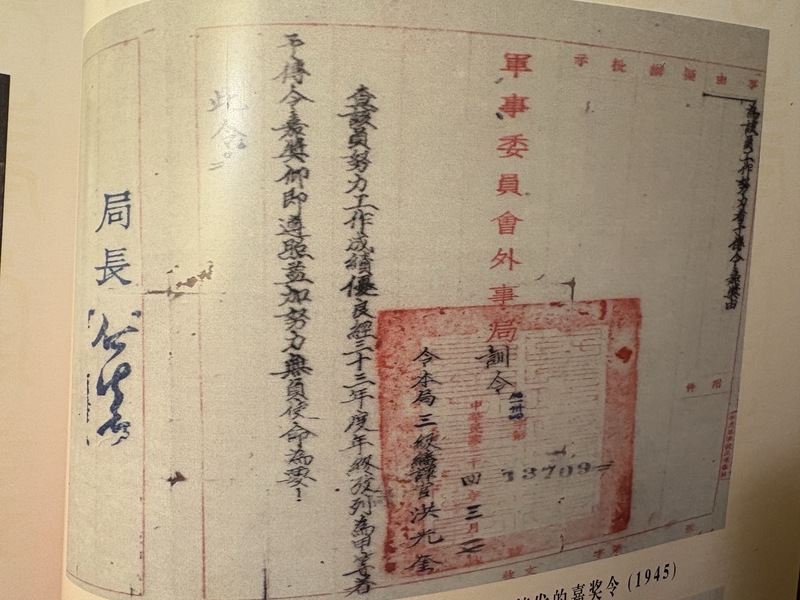 事由擬辦批示
為該員工作努力著予傳令嘉獎由
附件
軍事委員會外事局訓令
13709
中華民國三十四年三月
令本局三級繙譯官洪光奎
查該員努力工作成績優良經三十三年度年級考列為甲等著
予傳令嘉獎仰即遵照益加努力無負使命為要！
此令
局長
发的嘉奖令 (1945)